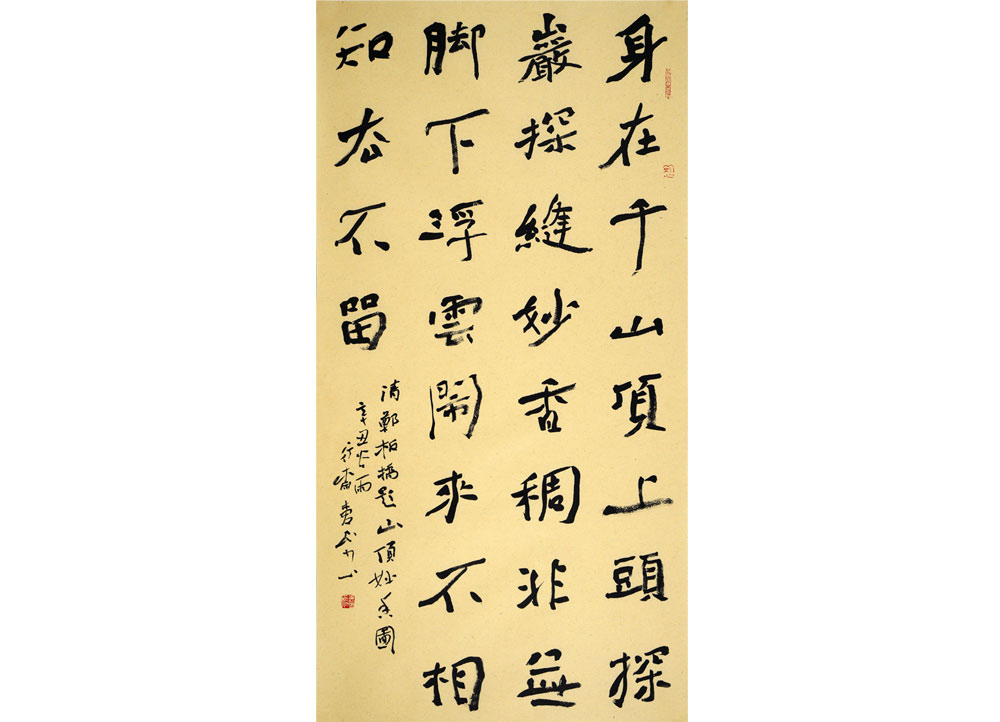 身在千山頂上頭探
巖探縫妙香稠非無
脚下浮雲鬧來不相
知去不留
清鄭板橋題山頂妙香圖
辛丑谷雨